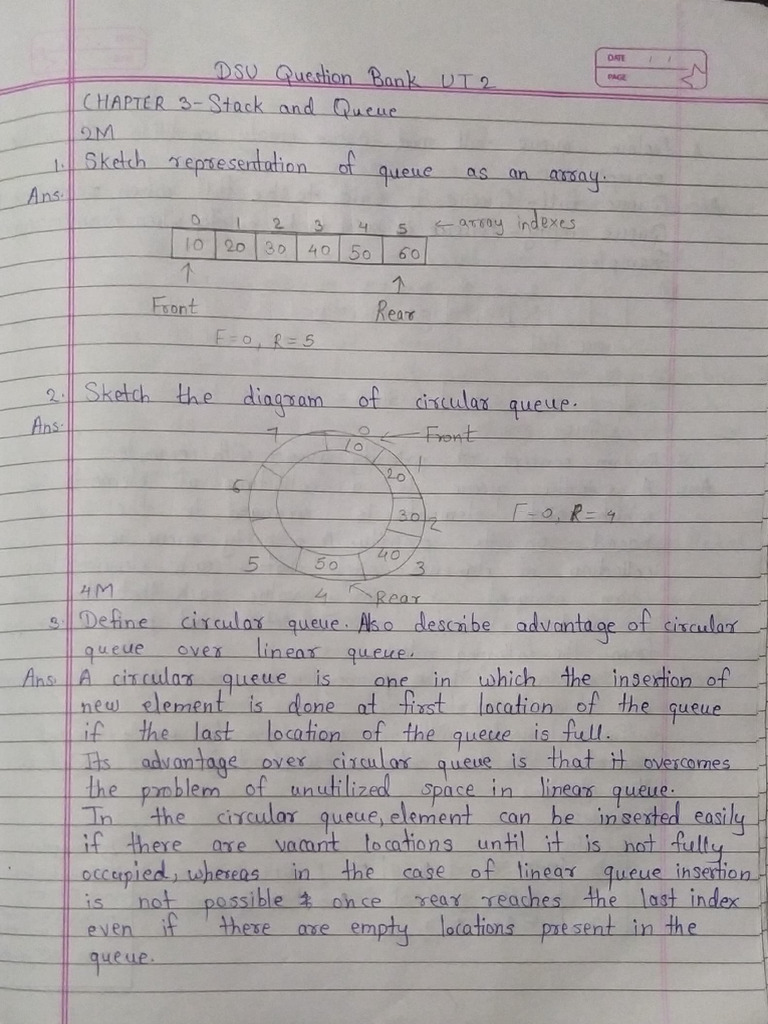 DSU Question Bank UT2
DATE
PAGE
CHAPTER 3-Stack and Queue
2M
1. Sketch representation of queue as an array.
Ans.
0 1 2 3 4 5 ← array indexes
10 20 30 40 50 60
↑ ↑
Front Rear
F=0, R=5
2. Sketch the diagram of circular queue.
Ans.
7 0 ← Front
10
1
20
6
30 2 F=0, R=4
40
5 50 3
4 Rear
4M
3. Define circular queue. Also describe advantage of circular
queue over linear queue.
Ans. A circular queue is one in which the insertion of
new element is done at first location of the queue
if the last location of the queue is full.
Its advantage over circular queue is that it overcomes
the problem of unutilized space in linear queue.
In the circular queue, element can be inserted easily
if there are vacant locations until it is not fully
occupied, whereas in the case of linear queue insertion
is not possible & once rear reaches the last index
even if there are empty locations present in the
queue.